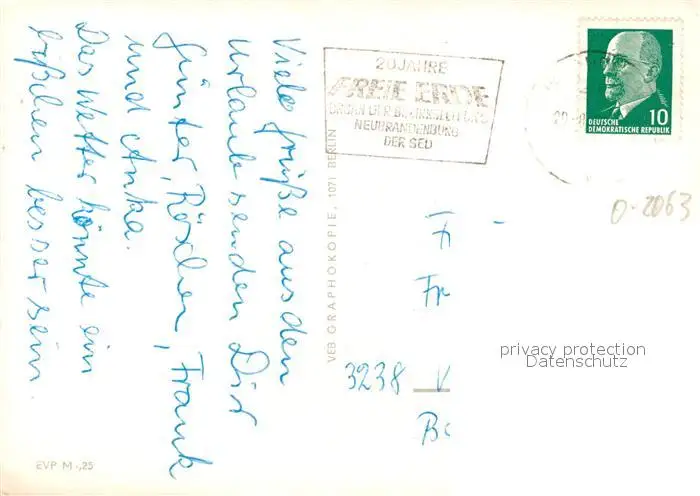 Viele Grüße aus dem
Urlaub senden Dir
Günter, Röschen, Frank
und Anka.
Das Wetter könnte ein
bißchen besser sein
EVP M -,25
VEB GRAPHOKOPIE, 1071 BERLIN
20 JAHRE
FREIE ERDE
ORGAN DER BEZIRKSLEITUNG
NEUBRANDENBURG
DER SED
10
DEUTSCHE
DEMOKRATISCHE REPUBLIK
0-2063
Fr
3238 V
privacy protection
Datenschutz